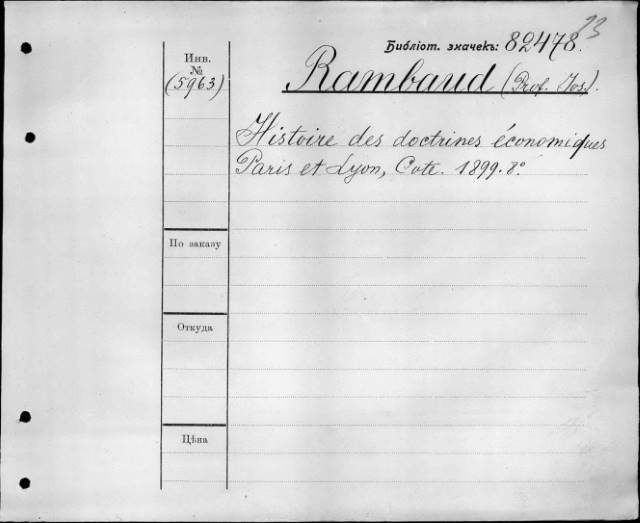 23
Библіот. значекъ: 82478.
Инв.
№
(5963)
Rambaud (Prof. Jos).
Histoire des doctrines économiques
Paris et Lyon, Cote. 1899. 8º.
По заказу
Откуда
Цѣна